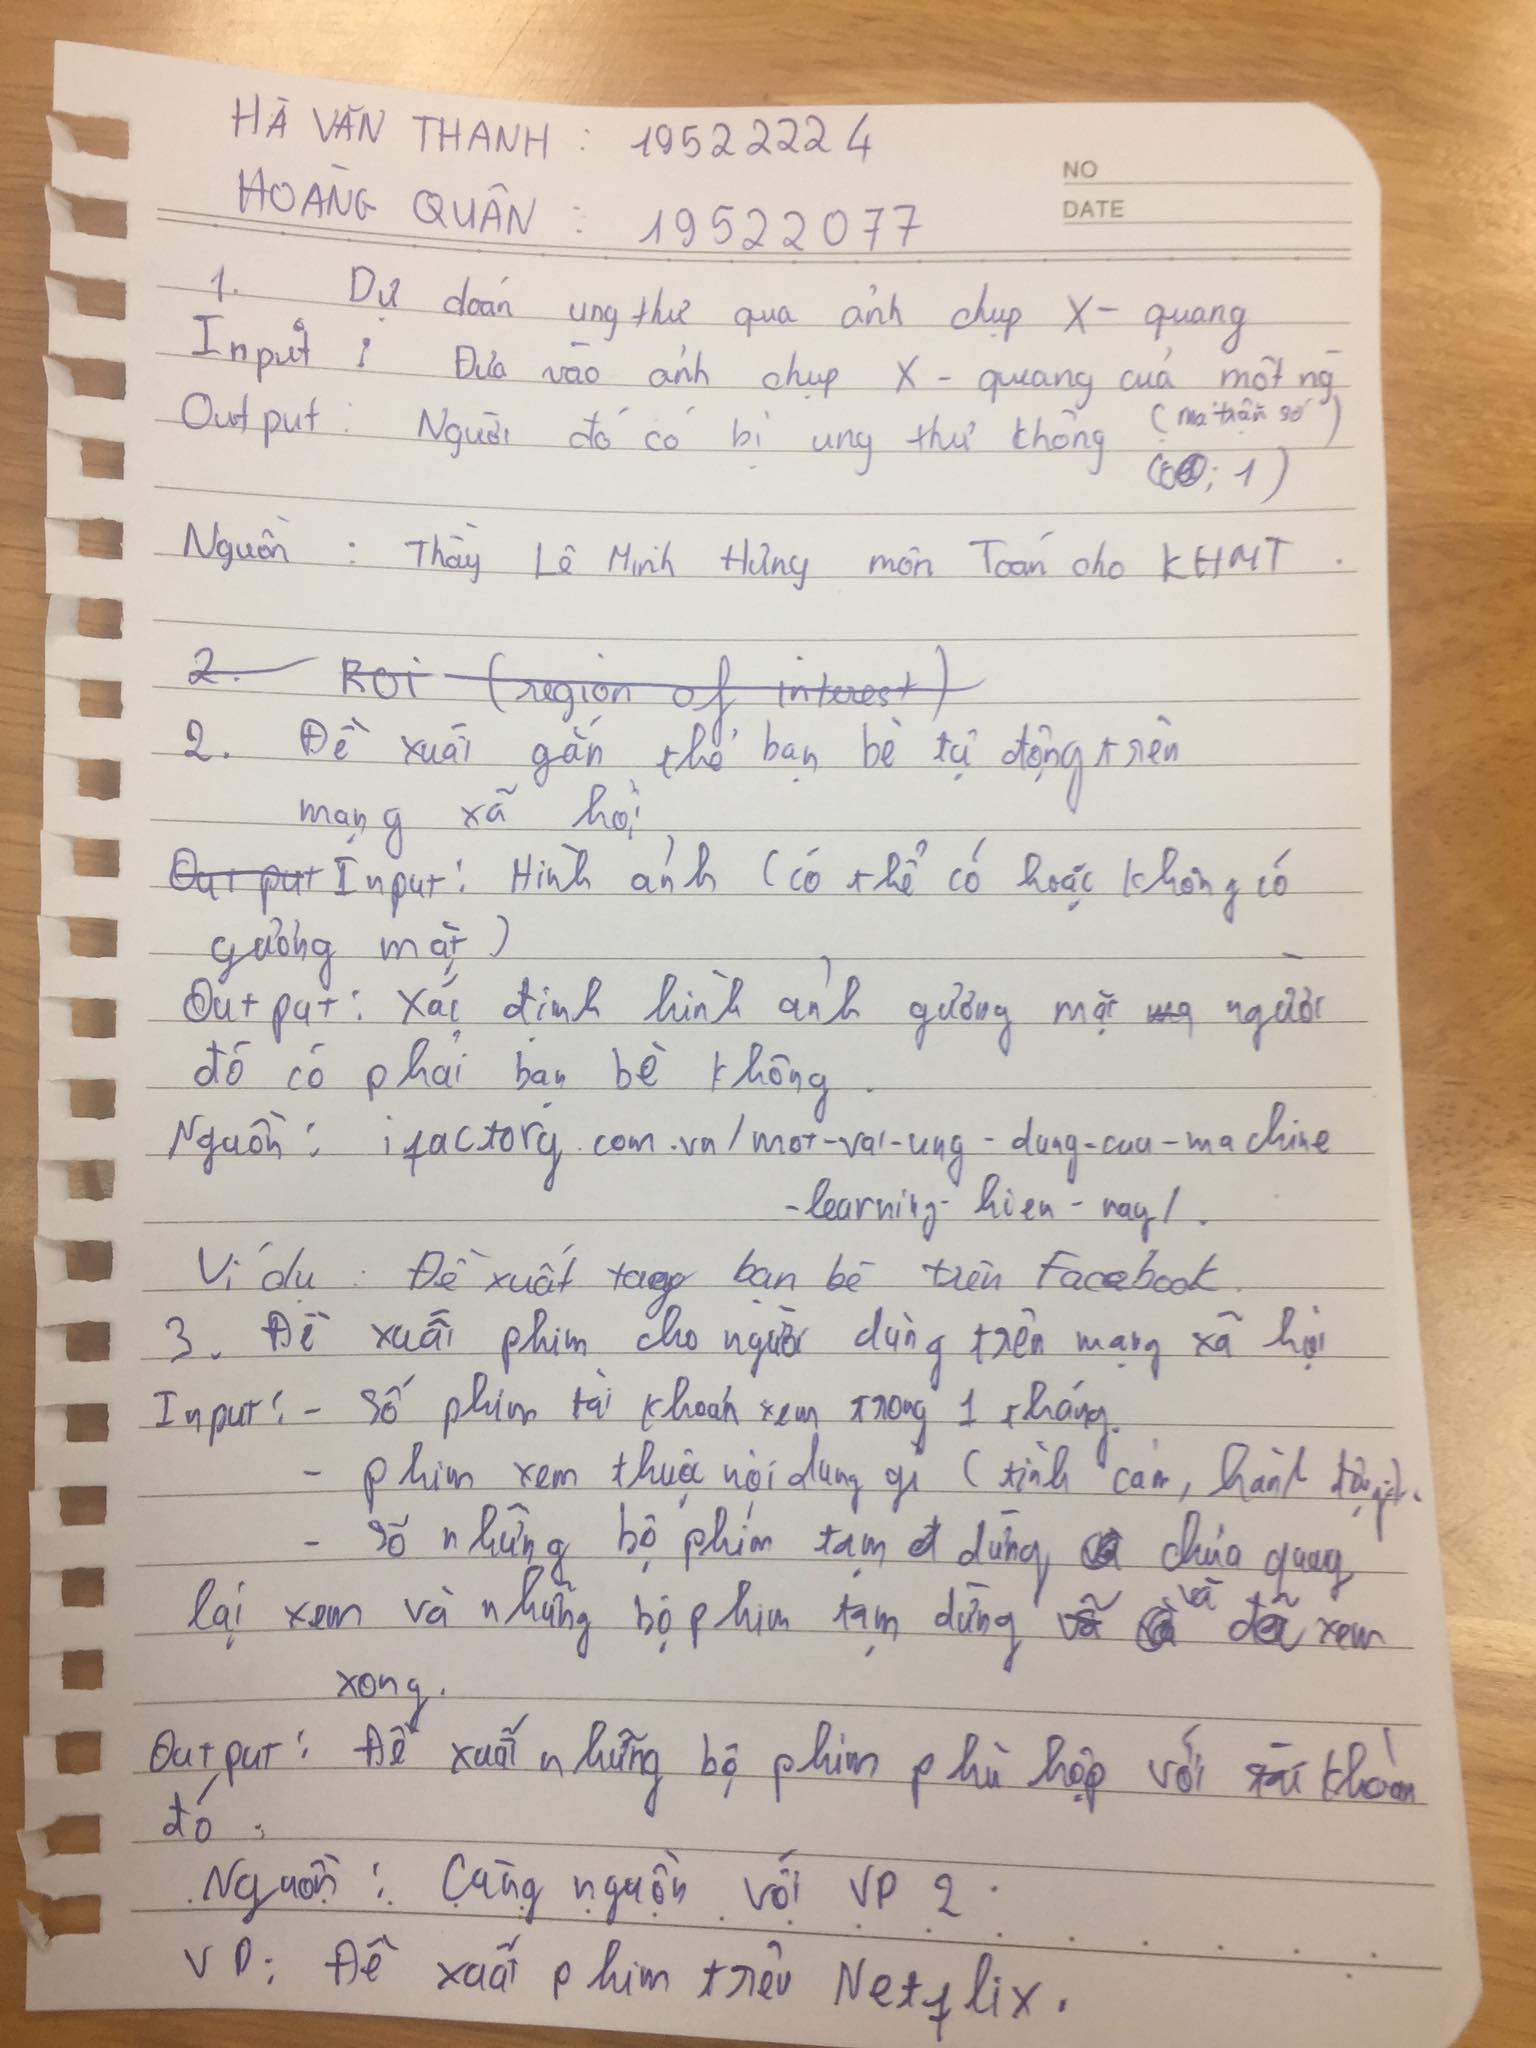 HÀ VĂN THANH : 19522224
HOÀNG QUÂN : 19522077
NO
DATE
1. Dự đoán ung thư qua ảnh chụp X-quang
Input : Đưa vào ảnh chụp X-quang của một ng
(ma trận số)
Output : Người đó có bị ung thư không
(0; 1)
Nguồn : Thầy Lê Minh Hưng môn Toán cho KHMT .
2. ROI (region of interest)
2. Đề xuất gắn thẻ bạn bè tự động trên
mạng xã hội
Output Input : Hình ảnh (có thể có hoặc không có
gương mặt)
Output : Xác định hình ảnh gương mặt người
đó có phải bạn bè không .
Nguồn : ifactory.com.vn/mot-vai-ung-dung-cua-machine
-learning-hien-nay/.
Ví dụ : Đề xuất tag bạn bè trên Facebook.
3. Đề xuất phim cho người dùng trên mạng xã hội
Input : - Số phim tài khoản xem trong 1 tháng.
- phim xem thuộc nội dung gì (tình cảm, hành động).
- Số những bộ phim tạm dừng chưa quay
lại xem và những bộ phim tạm dừng và đã xem
xong.
Output : Đề xuất những bộ phim phù hợp với tài khoản
đó .
Nguồn : Cùng nguồn với VD 2 .
VD : Đề xuất phim trên Netflix.